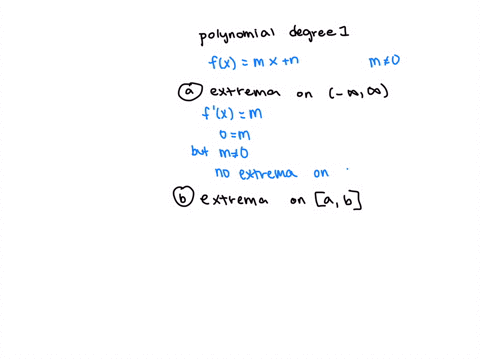 polynomial degree 1
f(x) = mx+n m≠0
ⓐ extrema on (-∞,∞)
f'(x) = m
0=m
but m≠0
no extrema on
ⓑ extrema on [a,b]